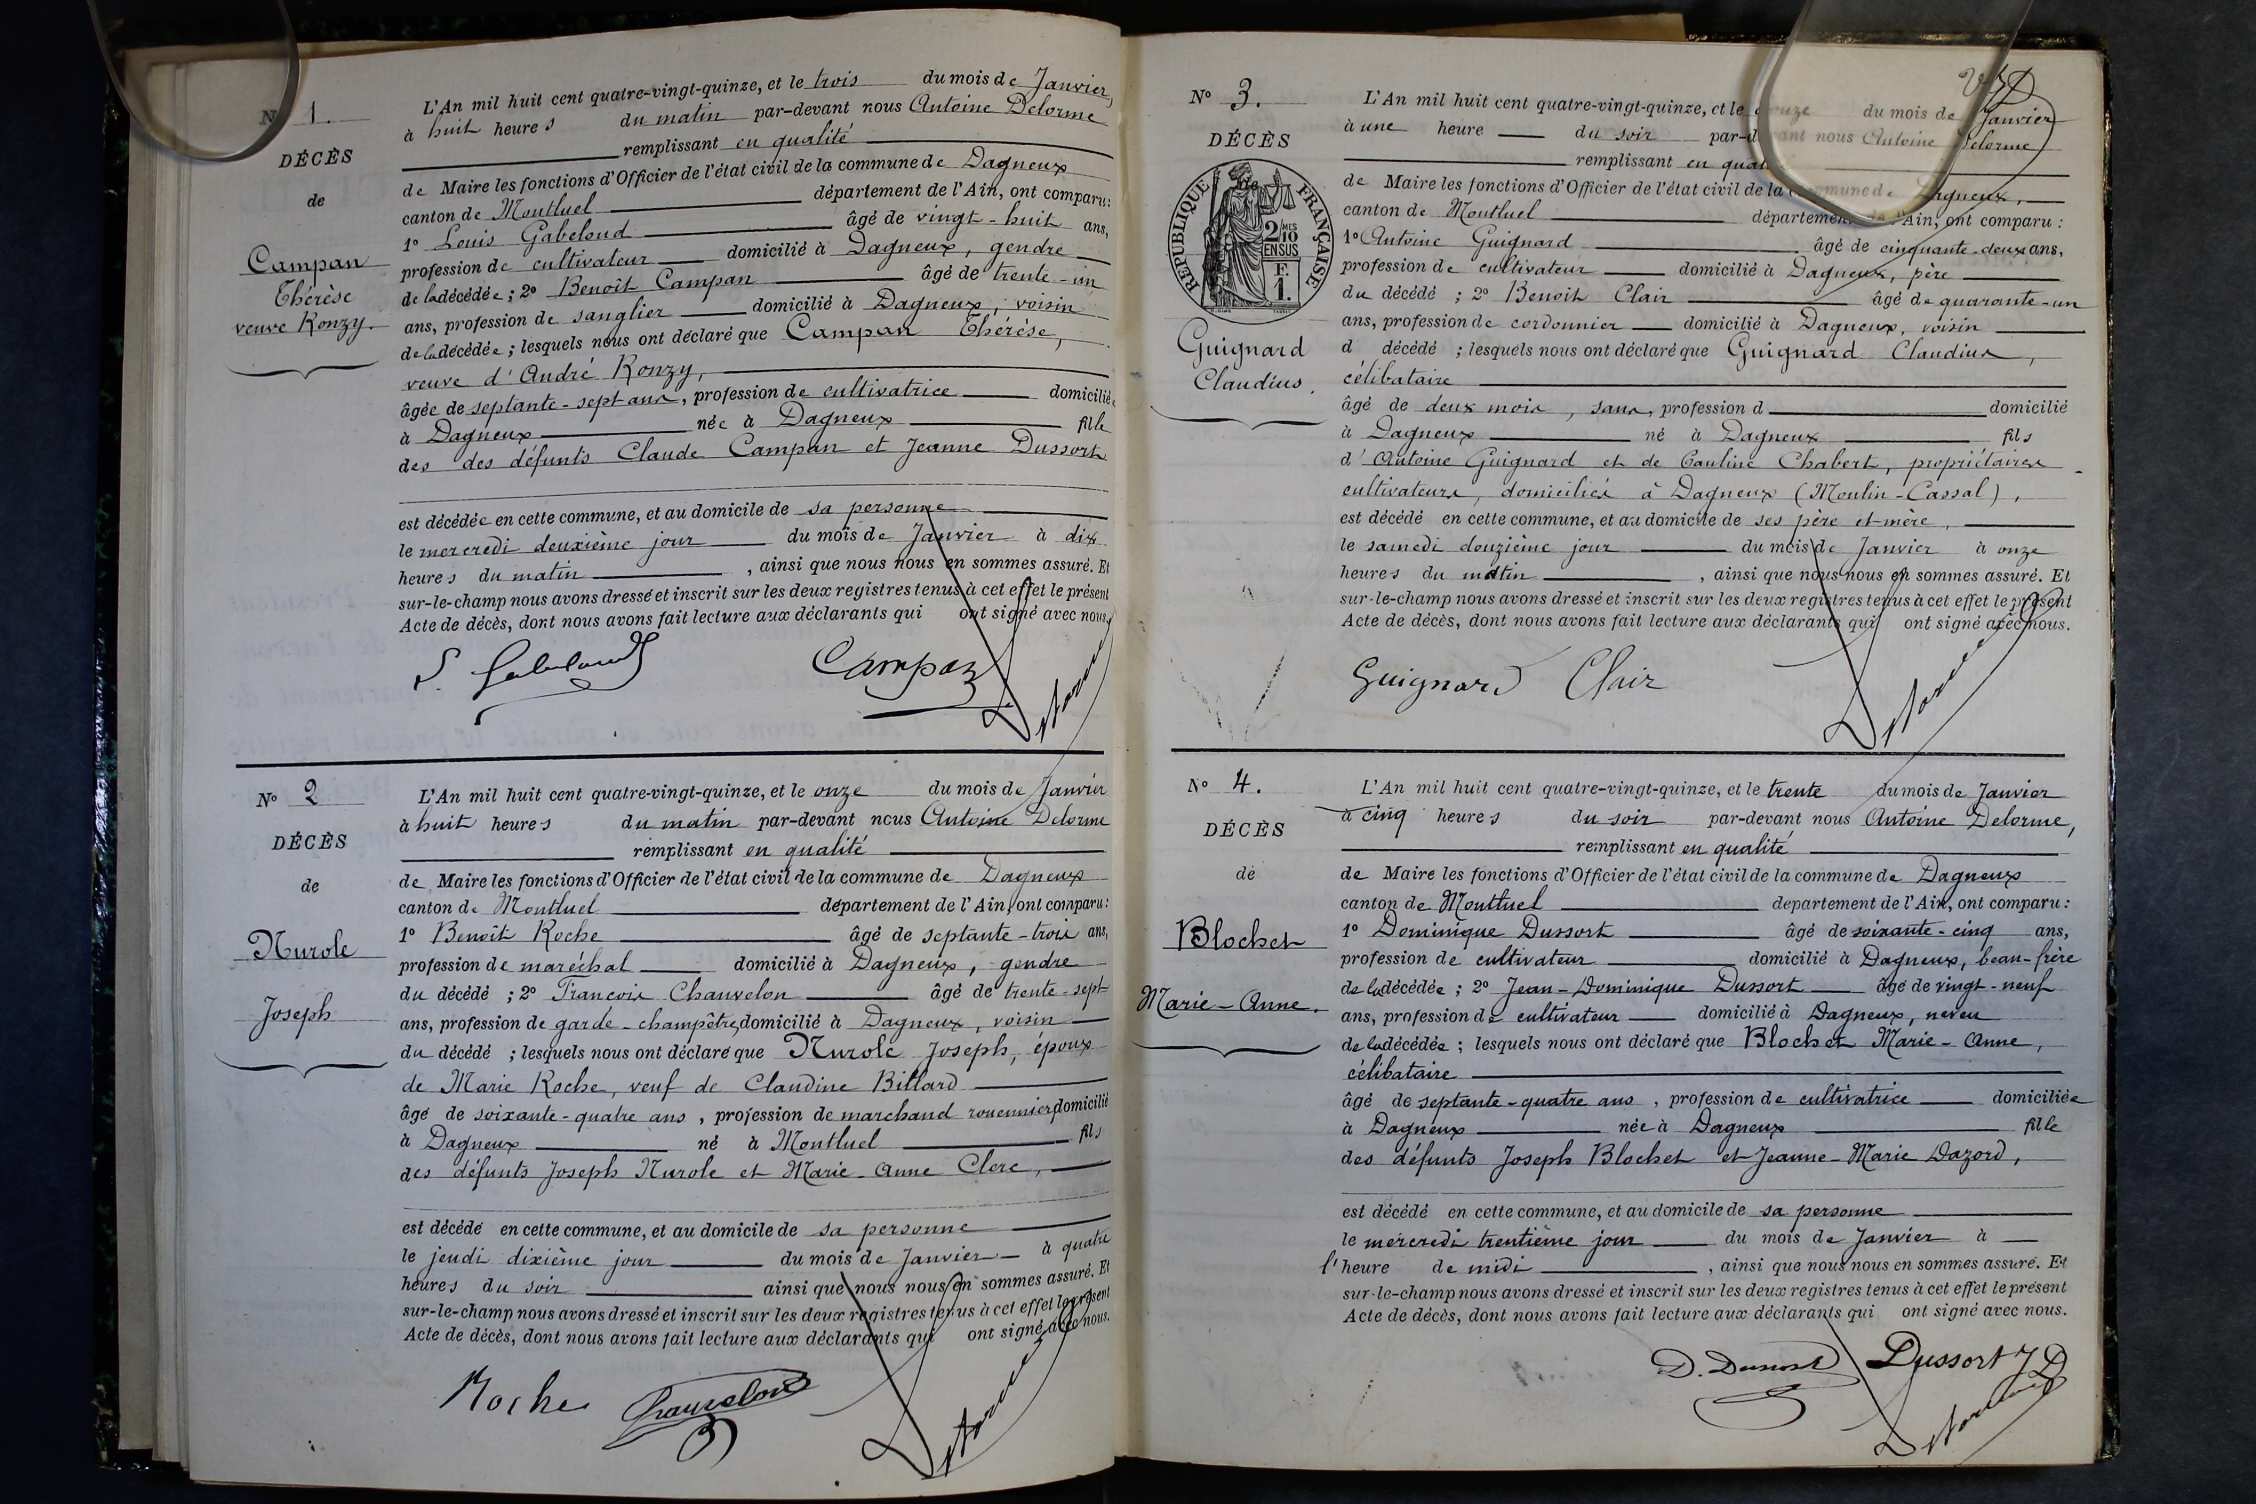 N° 1.
DÉCÈS
de
Campan
Thérèse
veuve Ronzy.
L'An mil huit cent quatre-vingt-quinze, et le trois du mois de Janvier,
à huit heures du matin par-devant nous Antoine Delorme
remplissant en qualité
de Maire les fonctions d'Officier de l'état civil de la commune de Dagneux
canton de Montluel département de l'Ain, ont comparu:
1° Louis Gabeloud âgé de vingt-huit ans,
profession de cultivateur domicilié à Dagneux, gendre
de la décédée; 2° Benoît Campan âgé de trente-un
ans, profession de sanglier domicilié à Dagneux, voisin
de la décédée; lesquels nous ont déclaré que Campan Thérèse,
veuve d'André Ronzy,
âgée de septante-sept ans, profession de cultivatrice domiciliée
à Dagneux née à Dagneux fille
des des défunts Claude Campan et Jeanne Dussort
est décédée en cette commune, et au domicile de sa personne
le mercredi deuxième jour du mois de Janvier à dix
heures du matin, ainsi que nous nous en sommes assuré. Et
sur-le-champ nous avons dressé et inscrit sur les deux registres tenus à cet effet le présent
Acte de décès, dont nous avons fait lecture aux déclarants qui ont signé avec nous.
Campan Delorme
N° 2
DÉCÈS
de
Nurole
Joseph
L'An mil huit cent quatre-vingt-quinze, et le onze du mois de Janvier
à huit heures du matin par-devant nous Antoine Delorme
remplissant en qualité
de Maire les fonctions d'Officier de l'état civil de la commune de Dagneux
canton de Montluel département de l'Ain, ont comparu:
1° Benoît Roche âgé de septante-trois ans,
profession de maréchal domicilié à Dagneux, gendre
du décédé; 2° François Chauvelon âgé de trente-sept
ans, profession de garde-champêtre domicilié à Dagneux, voisin
du décédé; lesquels nous ont déclaré que Nurole Joseph, époux
de Marie Roche, veuf de Claudine Billard
âgé de soixante-quatre ans, profession de marchand rouennier domicilié
à Dagneux né à Montluel fils
des défunts Joseph Nurole et Marie-Anne Clerc,
est décédé en cette commune, et au domicile de sa personne
le jeudi dixième jour du mois de Janvier à quatre
heures du soir ainsi que nous nous en sommes assuré. Et
sur-le-champ nous avons dressé et inscrit sur les deux registres tenus à cet effet le présent
Acte de décès, dont nous avons fait lecture aux déclarants qui ont signé avec nous.
Roche Chauvelon Delorme
N° 3.
DÉCÈS
RÉPUBLIQUE FRANÇAISE
2/10 MES
EN SUS
F.
1.
Guignard
Claudius.
L'An mil huit cent quatre-vingt-quinze, et le douze du mois de Janvier
à une heure du soir par-devant nous Antoine Delorme
remplissant en qualité
de Maire les fonctions d'Officier de l'état civil de la commune de Dagneux,
canton de Montluel département de l'Ain, ont comparu:
1° Antoine Guignard âgé de cinquante-deux ans,
profession de cultivateur domicilié à Dagneux, père
du décédé; 2° Benoit Clair âgé de quarante-un
ans, profession de cordonnier domicilié à Dagneux, voisin
d décédé; lesquels nous ont déclaré que Guignard Claudius,
célibataire
âgé de deux mois, sans, profession d domicilié
à Dagneux né à Dagneux fils
d'Antoine Guignard et de Pauline Chabert, propriétaires
cultivateurs, domiciliés à Dagneux (Moulin-Cassal),
est décédé en cette commune, et au domicile de ses père et mère,
le samedi douzième jour du mois de Janvier à onze
heures du matin, ainsi que nous nous en sommes assuré. Et
sur-le-champ nous avons dressé et inscrit sur les deux registres tenus à cet effet le présent
Acte de décès, dont nous avons fait lecture aux déclarants qui ont signé avec nous.
Guignard Clair Delorme
N° 4.
DÉCÈS
de
Blochet
Marie-Anne.
L'An mil huit cent quatre-vingt-quinze, et le trente du mois de Janvier
à cinq heures du soir par-devant nous Antoine Delorme,
remplissant en qualité
de Maire les fonctions d'Officier de l'état civil de la commune de Dagneux
canton de Montluel département de l'Ain, ont comparu:
1° Dominique Dussort âgé de soixante-cinq ans,
profession de cultivateur domicilié à Dagneux, beau-frère
de la décédée; 2° Jean-Dominique Dussort âgé de vingt-neuf
ans, profession de cultivateur domicilié à Dagneux, neveu
de la décédée; lesquels nous ont déclaré que Blochet Marie-Anne,
célibataire
âgé de septante-quatre ans, profession de cultivatrice domiciliée
à Dagneux née à Dagneux fille
des défunts Joseph Blochet et Jeanne-Marie Dazord,
est décédé en cette commune, et au domicile de sa personne
le mercredi trentième jour du mois de Janvier à
l'heure de midi, ainsi que nous nous en sommes assuré. Et
sur-le-champ nous avons dressé et inscrit sur les deux registres tenus à cet effet le présent
Acte de décès, dont nous avons fait lecture aux déclarants qui ont signé avec nous.
D. Dussort Dussort J D
Delorme